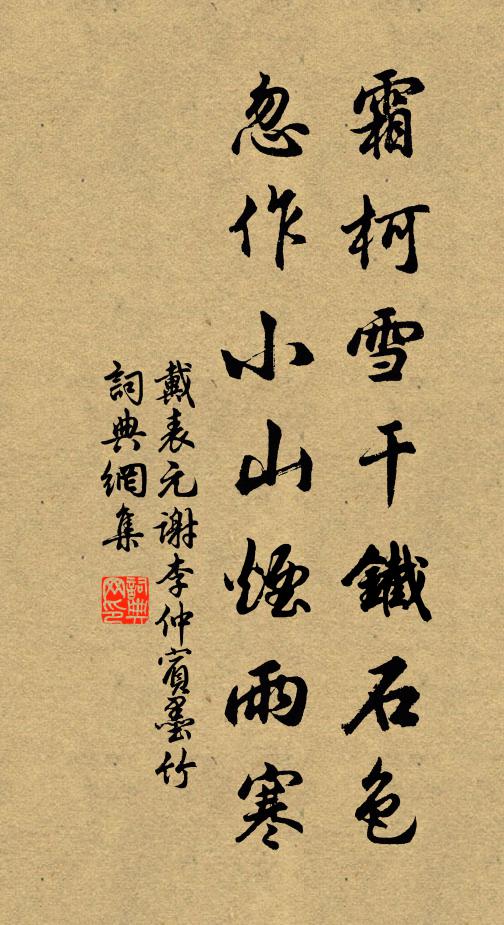 霜柯雪干鐵石色
忽作小山煙雨寒
戴表元謝李仲賓墨竹
詞典網集
詞典網印